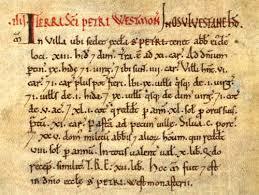 IIII. TERRA SCI PETRI WESTMON. IN OSVLVESTANE HD.
In Villa ubi sedet æccla S. PETRI. tenet abb ei'dē
loci. xiii. hid 7 dim. Tra. ē ad xi. car. Ad dnium
ptin. ix. hid 7 i. virg. 7 ibi sun. iiii. car. Villi hnt. vi.
car. 7 i. car plus pot fieri. Ibi. ix. uilli qsq; de. i. uirg.
7 i. uills de. i. hida. 7 ix. uilli qsq; de dim uirg. 7 i. cot
de. v. acris. 7 xli. cot qui reddt p annū xl. sol p ortis suis.
Ptū. xi. car. Pasta ad pecun uillæ. Silua. c. porc.
7 xxv. dom militū abbis 7 alioz houm. qui reddt
viii. sol p annū. In totis ualent ual. x. lib. Qdo
recep. similit. T.R.E. xii. lib. Hoc m fuit 7 est
in dnio eccle S. PETRI. Westmonasterii.